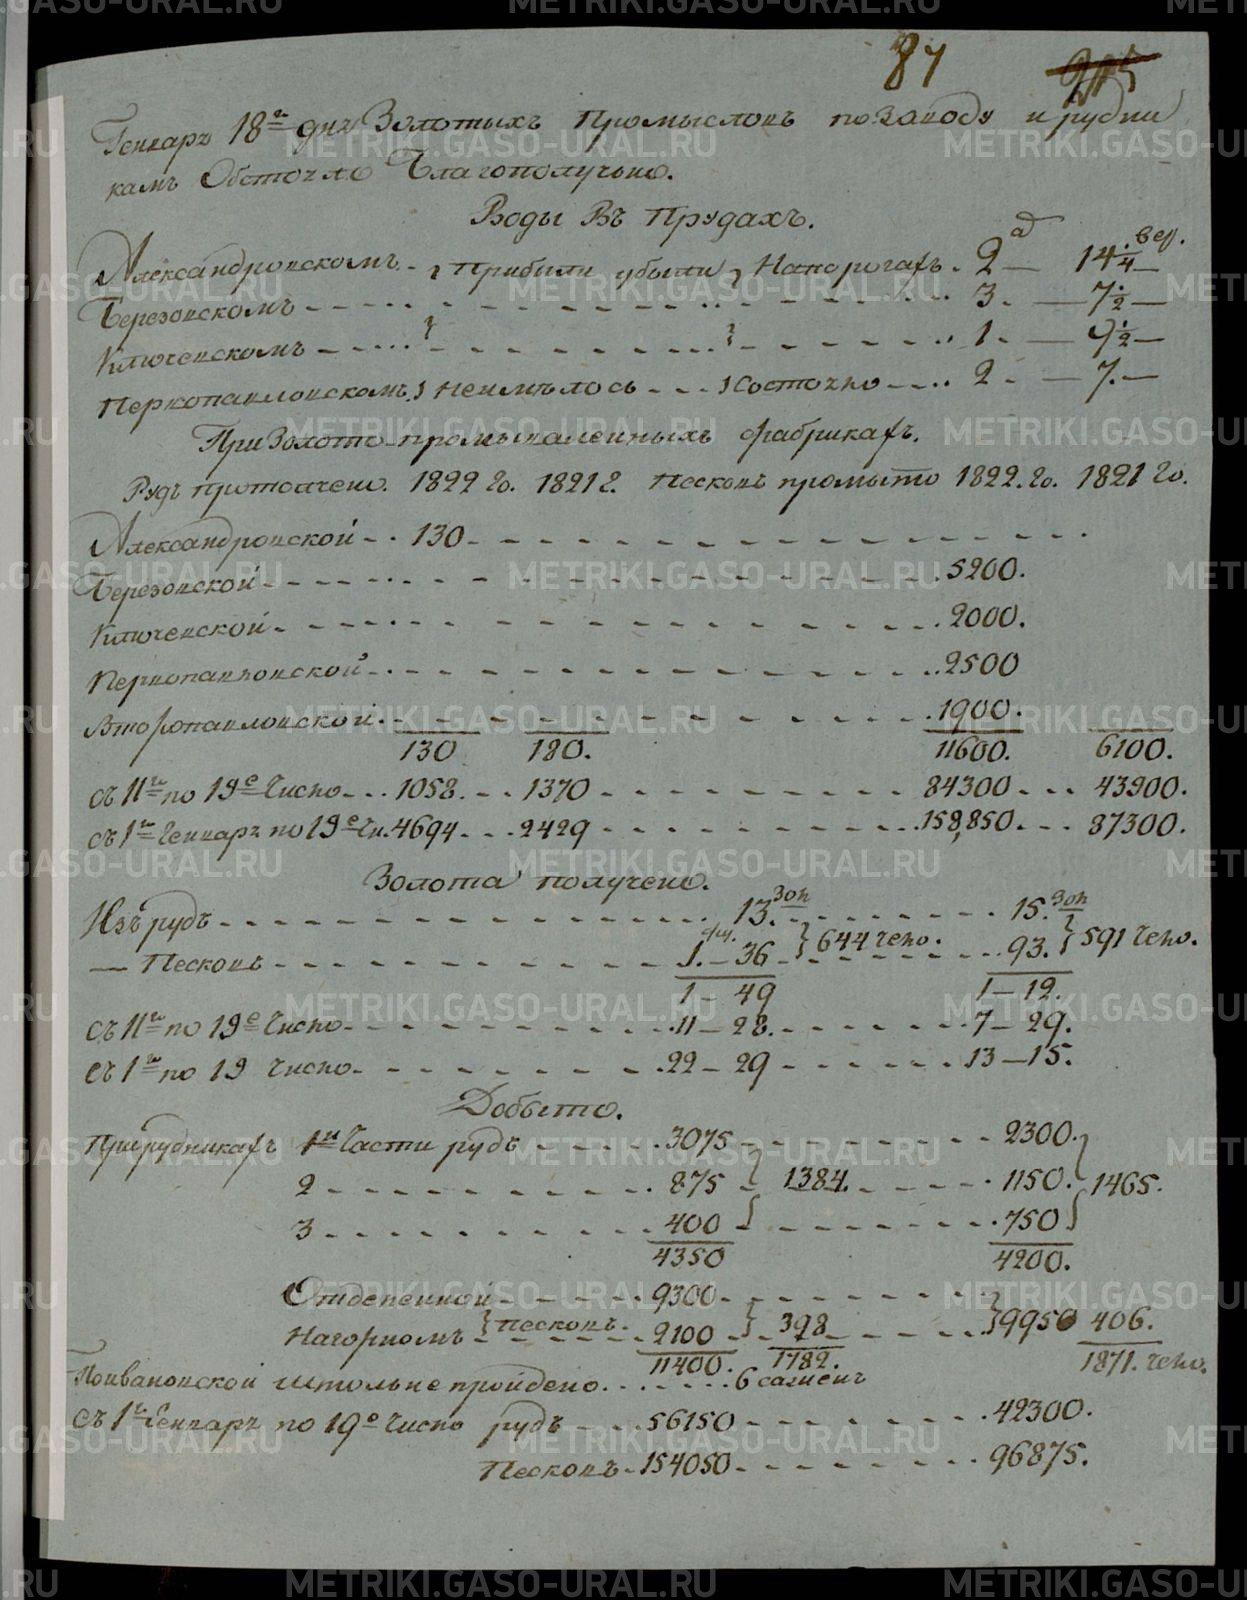 87
Генваря 18го дня Золотыхъ Промысловъ по заводу и рудни
камъ Обстояло Благополучьно.
Воды Въ Прудахъ.
Александровскомъ - } Прибыли убыли } Напорогахъ. 2 а — 14 1/4 вер.
Березовскомъ 3. — 7 1/2 —
Ключевскомъ } } 1. — 9 1/2 —
Первопавловскомъ } Неимѣлось } Состояло 2. — 7. —
При Золото-промываленныхъ фабрикахъ.
Рудъ протолчено. 1822 го. 1821 г. Песковъ промыто 1822. го. 1821 го.
Александровской 130
Березовской 5200.
Ключевской 2000.
Первопавловской 2500
Второпавловской 1900.
130 180. 11600. 6100.
съ 11го по 19е Число 1058. 1370 84300 43900.
съ 1го Генваря по 19е Чи. 4694 2429 158,850. 87300.
Золота получено.
Изъ рудъ 13. зол 15. зол
— Песковъ фу. 1. — 36 } 644 чело. 93. } 591 чело.
1 — 49 1 — 12.
съ 11го по 19е Число 11 — 28. 7 — 29.
съ 1го по 19 Число 22 — 29 13 — 15.
Добыто.
При рудникахъ 1й Части рудъ 3075 2300.
2 875 } 1384. 1150. } 1465.
3 400 750
4350 4200.
Отделенной 9300
Нагорномъ } песковъ. 2100 } 398 } 9950 406.
11400. 1782. 1871. чело.
Поивановской штольне пройдено 6 сажень
съ 1го Генваря по 19е Число рудъ 56150 42300.
Песковъ 154050 96875.